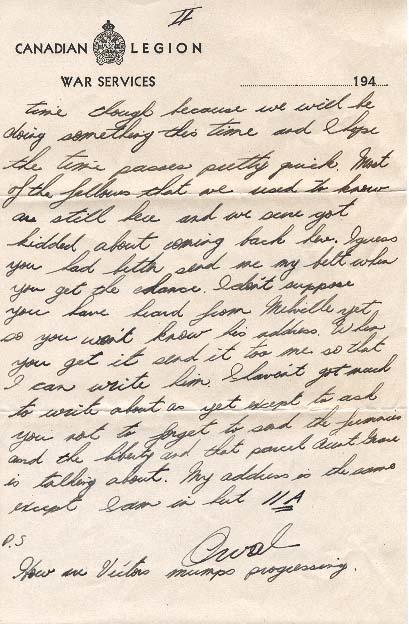 II
CANADIAN LEGION
WAR SERVICES
194
time though because we will be
doing something this time and I hope
the time passes pretty quick. Most
of the fellows that we used to know
are still here and we sure got
kidded about coming back here. I guess
you had better send me my belt when
you get the chance. I don't suppose
you have heard from Melville yet
so you won't know his address. When
you get it send it too me so that
I can write him. I haven't got much
to write about as yet except to ask
you not to forget to send the
and the liberty and that parcel Aunt Grace
is talking about. My address is the same
except I am in hut 11A
Orval
P.S
How are Victors mumps progressing.